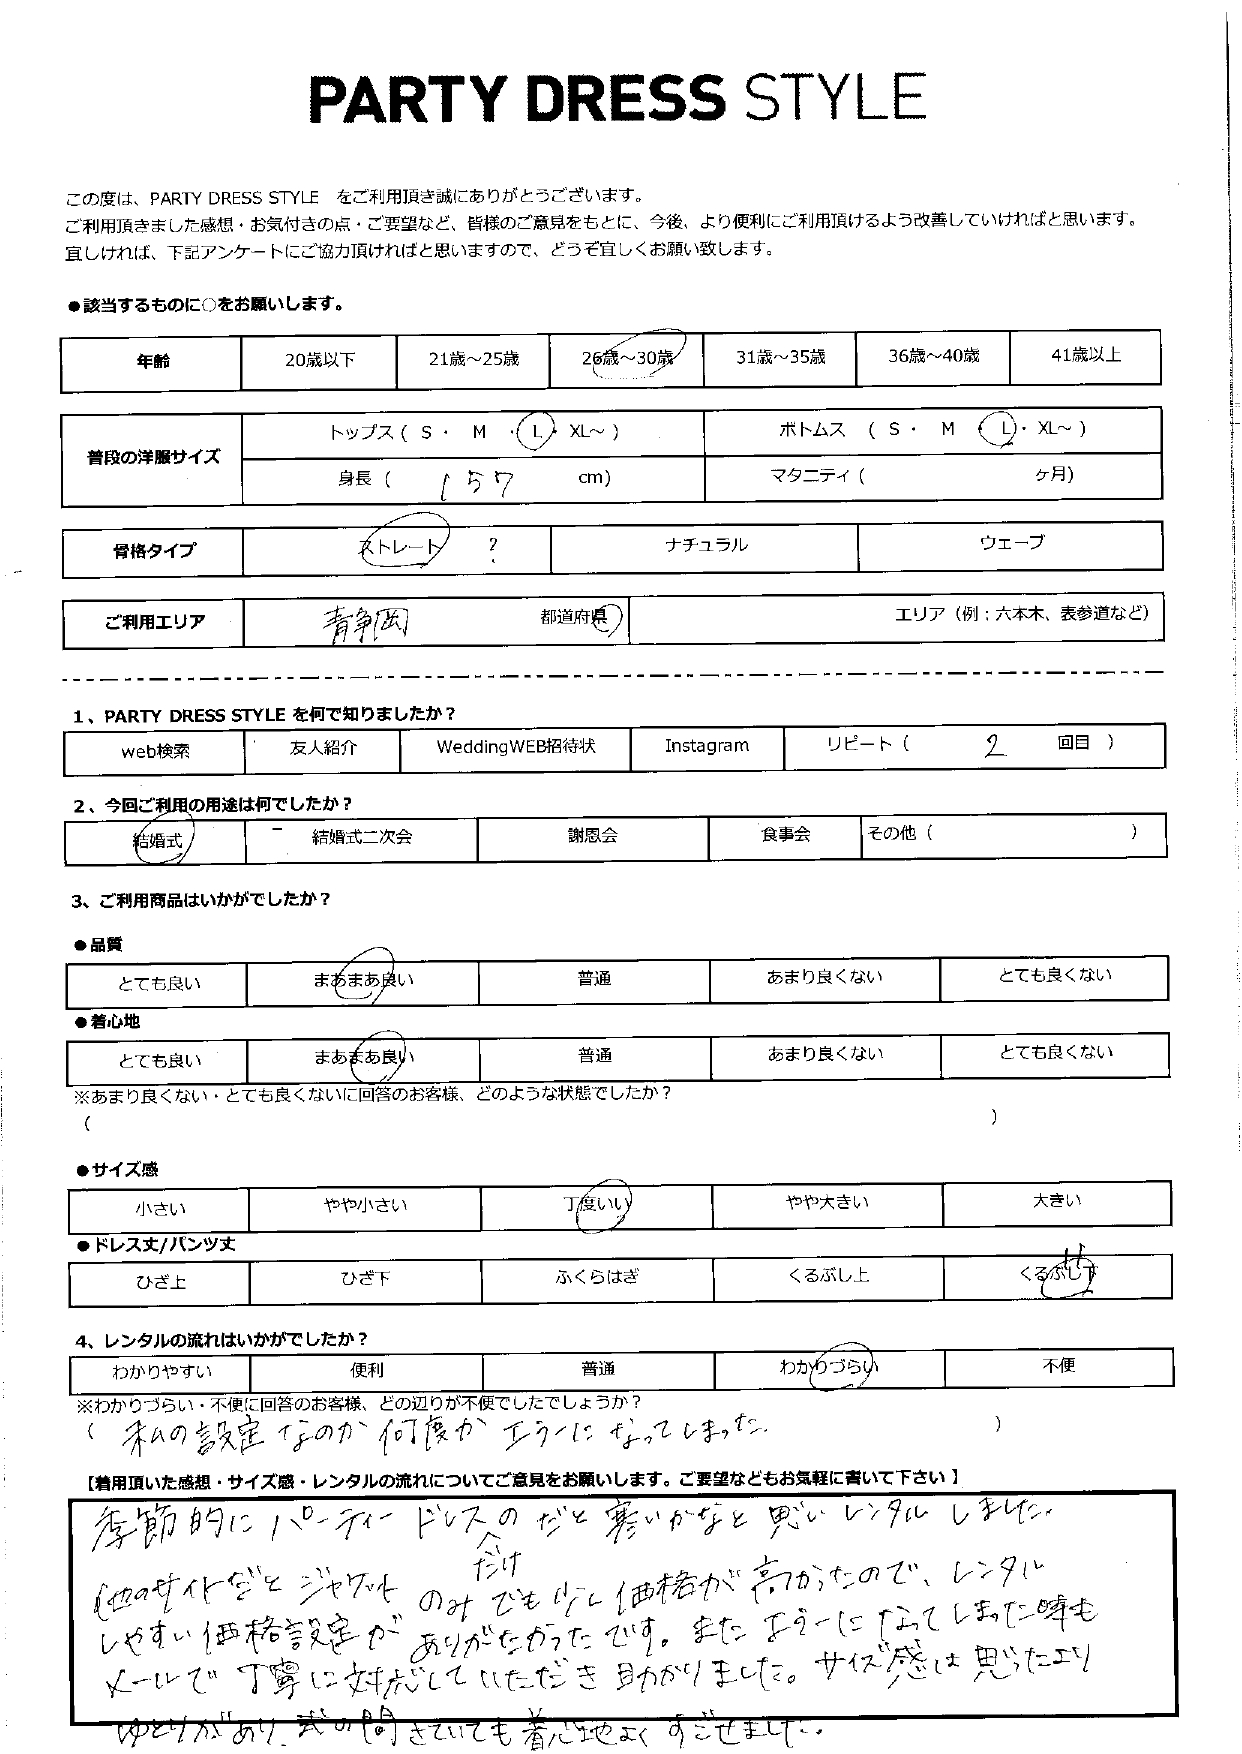 PARTY DRESS STYLE
この度は、PARTY DRESS STYLE をご利用頂き誠にありがとうございます。
ご利用頂きました感想・お気付きの点・ご要望など、皆様のご意見をもとに、今後、より便利にご利用頂けるよう改善していければと思います。
宜しければ、下記アンケートにご協力頂ければと思いますので、どうぞ宜しくお願い致します。
●該当するものに○をお願いします。
年齢 20歳以下 21歳～25歳 26歳～30歳 31歳～35歳 36歳～40歳 41歳以上
普段の洋服サイズ トップス ( S ・ M ・ L ・ XL～ ) ボトムス ( S ・ M ・ L ・ XL～ )
身長 ( 157 cm) マタニティ ( ヶ月)
骨格タイプ ストレート ? ナチュラル ウェーブ
ご利用エリア 静岡 都道府県 エリア（例：六本木、表参道など）
1、PARTY DRESS STYLE を何で知りましたか？
web検索 友人紹介 WeddingWEB招待状 Instagram リピート ( 2 回目 )
2、今回ご利用の用途は何でしたか？
結婚式 結婚式二次会 謝恩会 食事会 その他 ( )
3、ご利用商品はいかがでしたか？
●品質
とても良い まあまあ良い 普通 あまり良くない とても良くない
●着心地
とても良い まあまあ良い 普通 あまり良くない とても良くない
※あまり良くない・とても良くないに回答のお客様、どのような状態でしたか？
( )
●サイズ感
小さい やや小さい 丁度いい やや大きい 大きい
●ドレス丈/パンツ丈
ひざ上 ひざ下 ふくらはぎ くるぶし上 くるぶし下
4、レンタルの流れはいかがでしたか？
わかりやすい 便利 普通 わかりづらい 不便
※わかりづらい・不便に回答のお客様、どの辺りが不便でしたでしょうか？
( 私の設定なのか何度かエラーになってしまった )
【着用頂いた感想・サイズ感・レンタルの流れについてご意見をお願いします。ご要望などもお気軽に書いて下さい】
季節的にパーティードレスのだと寒いかなと思いレンタルしました。
だけ
他のサイトだとジャケットのみでも少し価格が高かったので、レンタル
しやすい価格設定がありがたかったです。またエラーになってしまった時も
メールで丁寧に対応していただき助かりました。サイズ感は思ったより
ゆとりがあり、式の間きていても着心地よくすごせました。